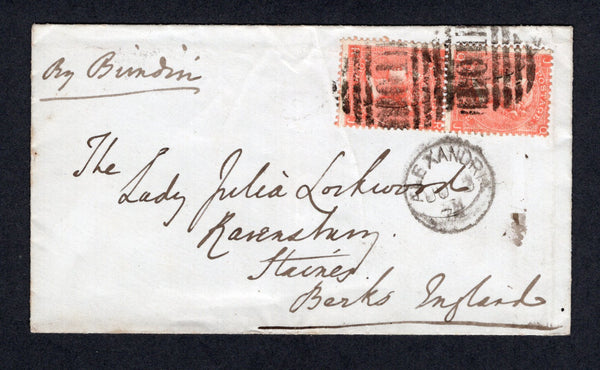 By Brindisi
ALEXANDRIA
The
Lady Julia Lockwood
Ravensbury.
Staines.
Berks England